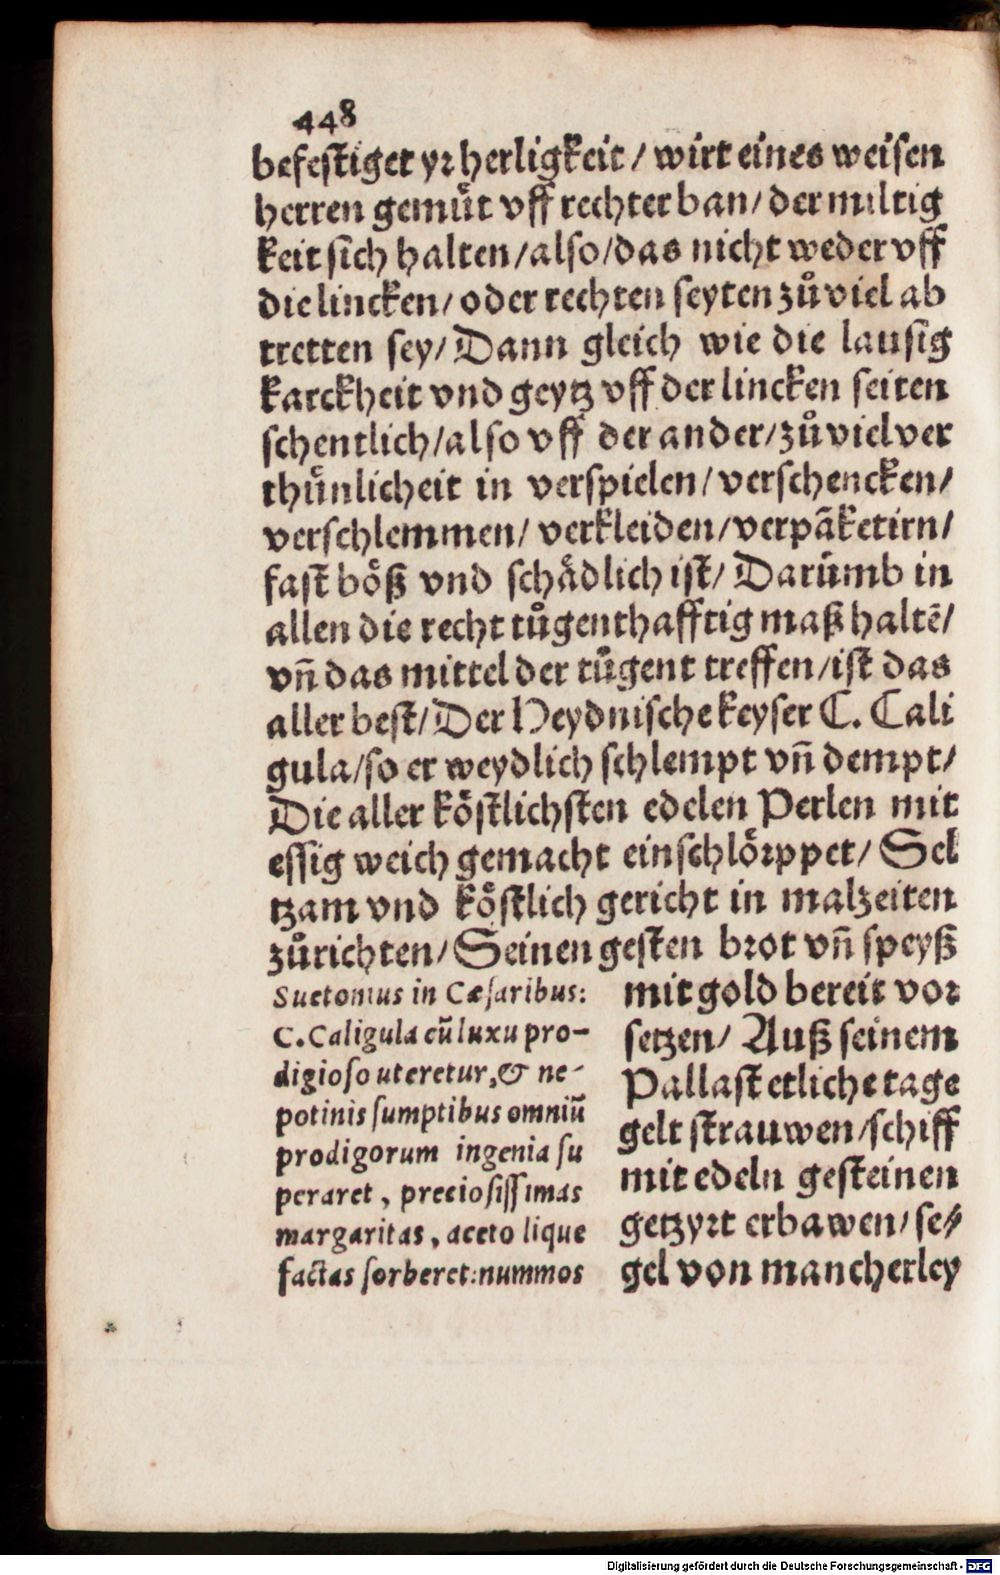 448
befestiget yꝛ herligkeit / wirt eines weisen
herren gemuͤt vff rechter ban / der miltig
keit sich halten / also / das nicht weder vff
die lincken / oder rechten seyten zuͦ viel ab
tretten sey / Dann gleich wie die lausig
karckheit vnd geytz vff der lincken seiten
schentlich / also vff der ander / zuͦ viel ver
thuͤnlicheit in verspielen / verschencken /
verschlemmen / verkleiden / verpãketirn /
fast boͤß vnd schaͤdlich ist / Daruͤmb in
allen die recht tuͦgenthafftig maß haltẽ /
vñ das mittel der tuͤgent treffen / ist das
aller best / Der Heydnische keyser C. Cali
gula / so er weydlich schlempt vñ dempt /
Die aller koͤstlichsten edelen Perlen mit
essig weich gemacht einschloͤꝛppet / Sel
tzam vnd koͤstlich gericht in malzeiten
zuͦrichten / Seinen gesten bꝛot vñ speyß
mit gold bereit voꝛ
setzen / Auß seinem
Pallast etliche tage
gelt strauwen / schiff
mit edeln gesteinen
getzyꝛt erbawen / se⸗
gel von mancherley
Suetonius in Cæsaribus:
C. Caligula cũ luxu pro-
digioso uteretur, & ne-
potinis sumptibus omniũ
prodigorum ingenia su
peraret, preciosissimas
margaritas, aceto lique
factas sorberet: nummos
Digitalisierung gefördert durch die Deutsche Forschungsgemeinschaft - DFG